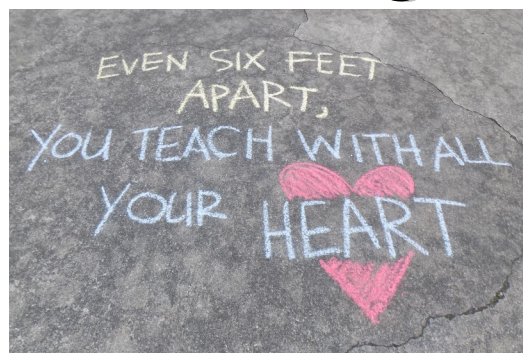 EVEN SIX FEET
APART,
YOU TEACH WITH ALL
YOUR HEART